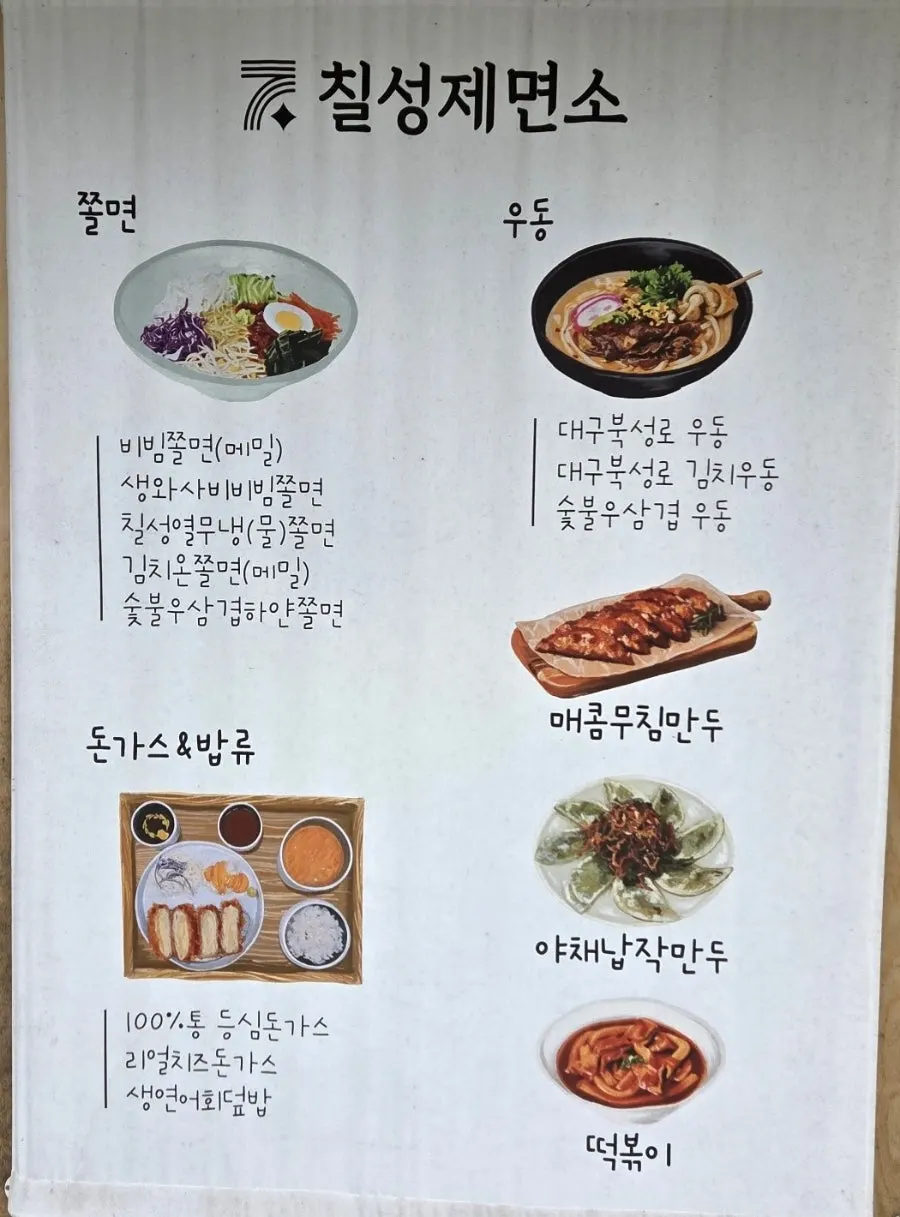 칠성제면소
쫄면
비빔쫄면(메밀)
생와사비비빔쫄면
칠성열무냉(물)쫄면
김치온쫄면(메밀)
숯불우삼겹하얀쫄면
돈가스&밥류
100%통 등심돈가스
리얼치즈돈가스
생연어회덮밥
우동
대구북성로 우동
대구북성로 김치우동
숯불우삼겹 우동
매콤무침만두
야채납작만두
떡볶이